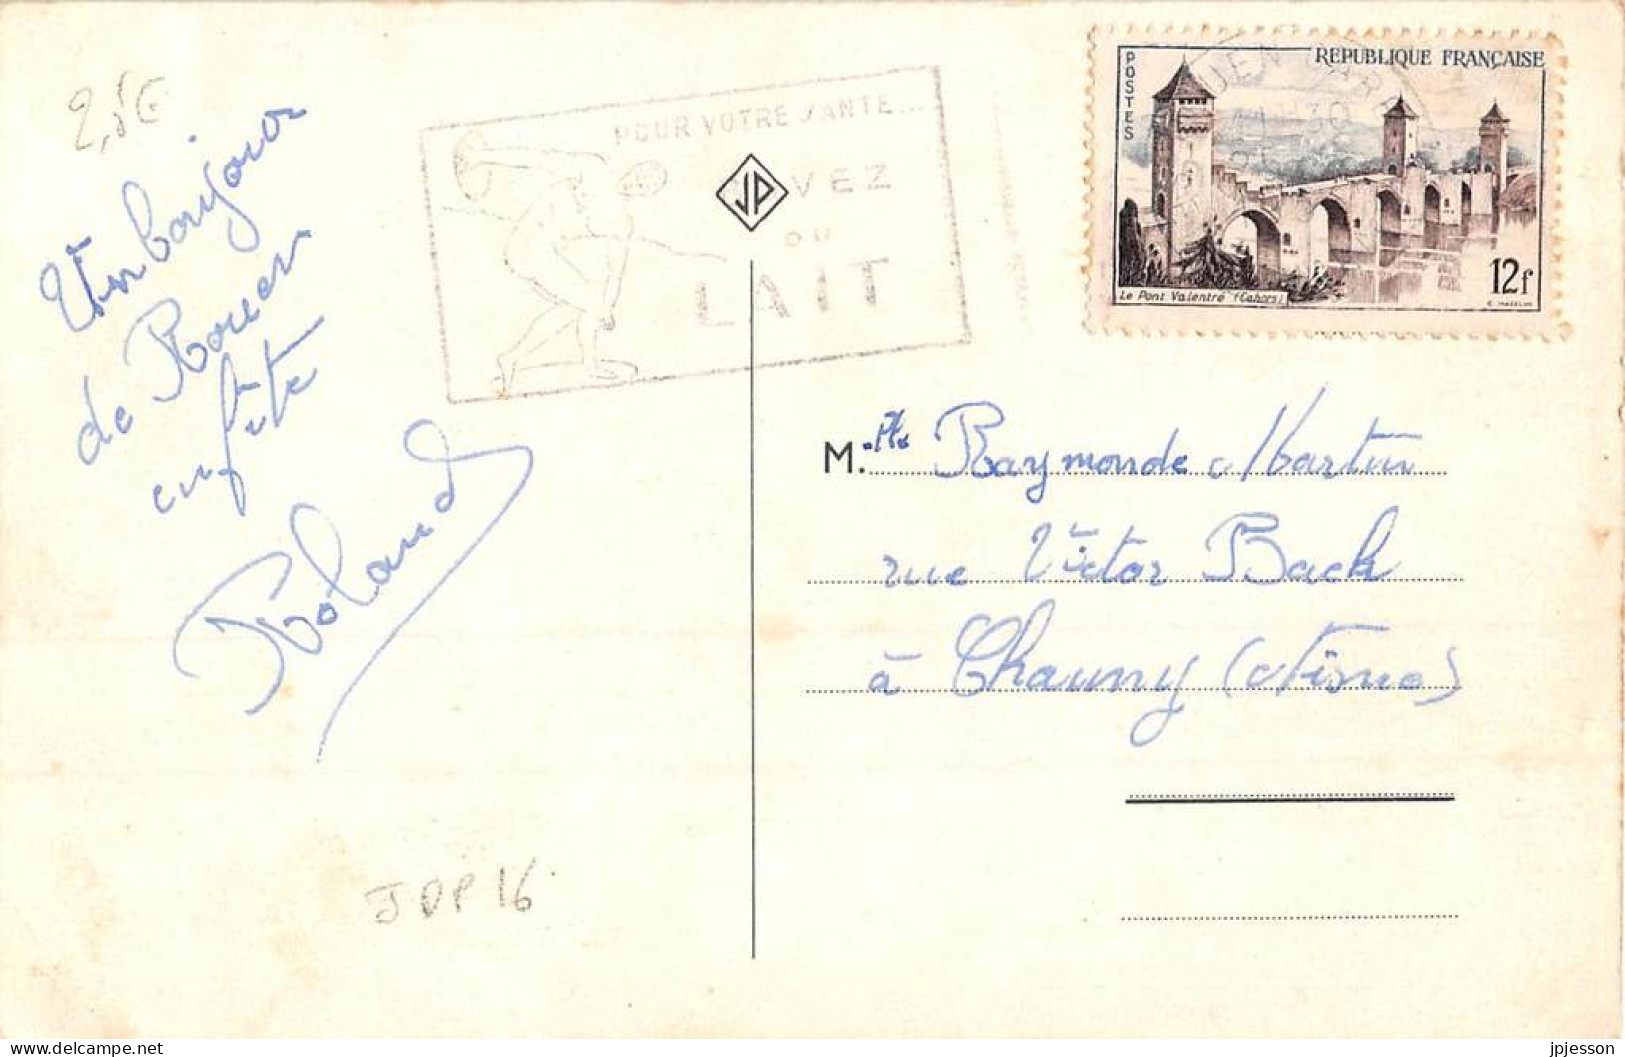 2,5€
Un bonjour
de Rouen
en fête
Roland
JDP 16
POUR VOTRE SANTE...
VEZ
DU
LAIT
JP
POSTES
REPUBLIQUE FRANÇAISE
Le Pont Valentré (Cahors)
12f
M.lle Raymonde Martin
rue Victor Back
à Chauny (Aisne)
delcampe.net
jpjesson